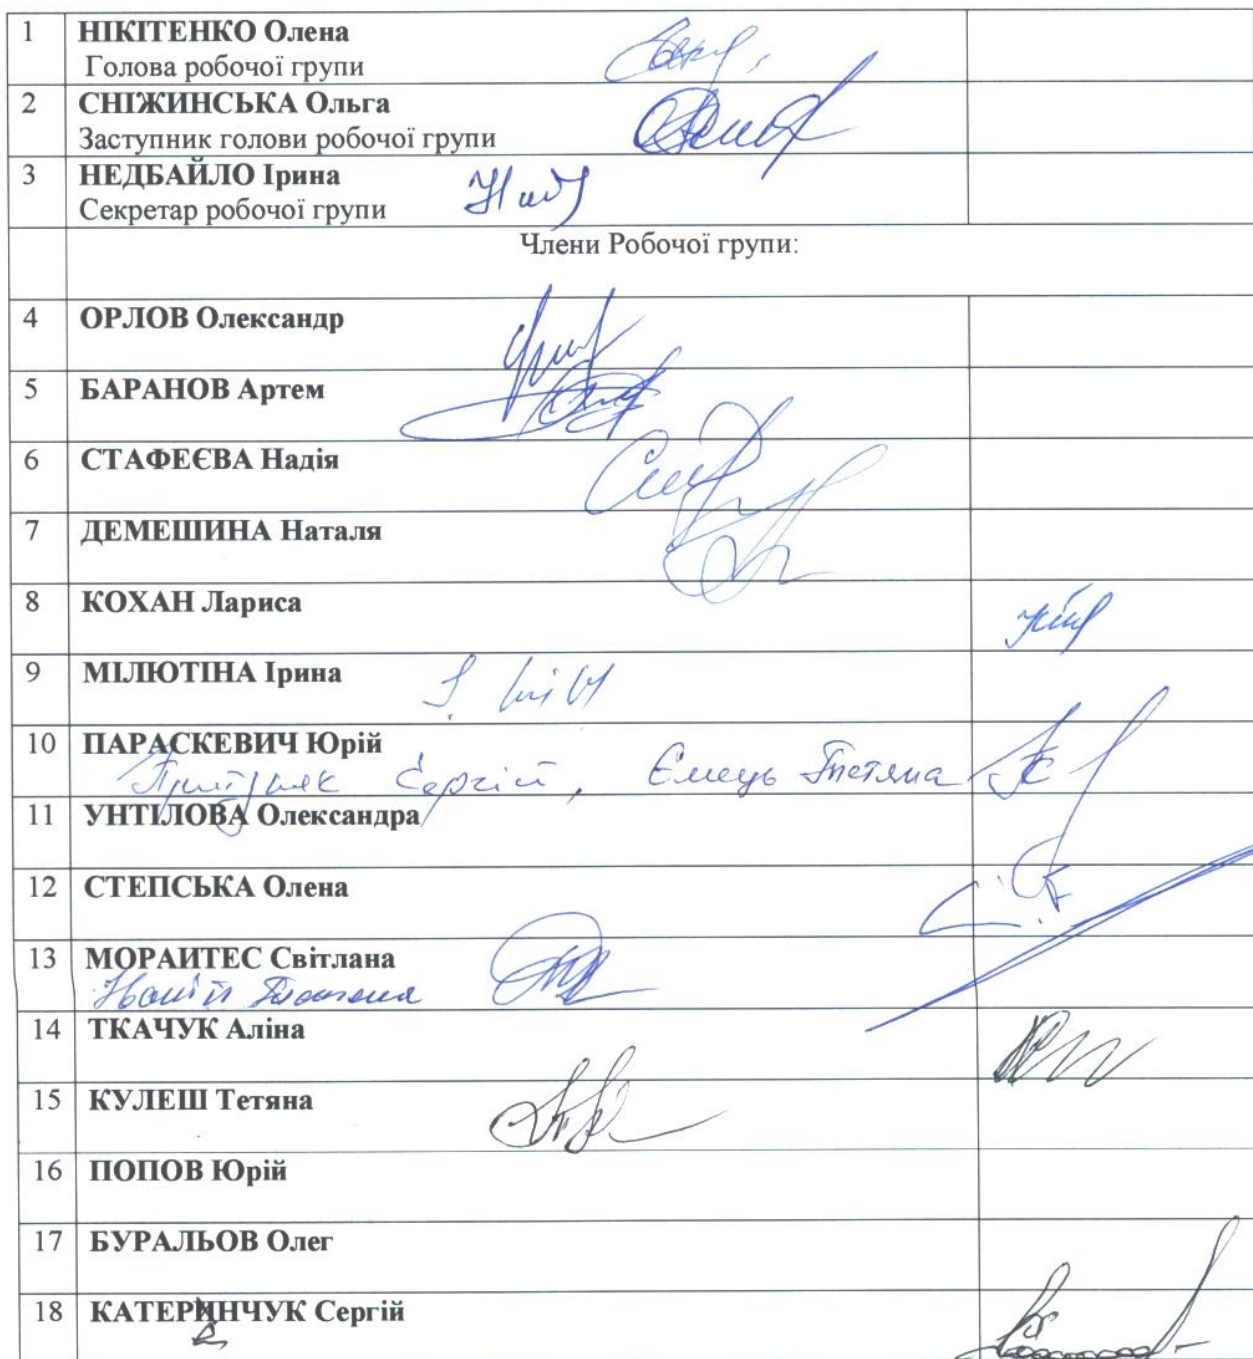 1 НІКІТЕНКО Олена
Голова робочої групи
2 СНІЖИНСЬКА Ольга
Заступник голови робочої групи
3 НЕДБАЙЛО Ірина
Секретар робочої групи
Члени Робочої групи:
4 ОРЛОВ Олександр
5 БАРАНОВ Артем
6 СТАФЕЄВА Надія
7 ДЕМЕШИНА Наталя
8 КОХАН Лариса
9 МІЛЮТІНА Ірина
10 ПАРАСКЕВИЧ Юрій
Сергій, Ємець Тетяна
11 УНТІЛОВА Олександра
12 СТЕПСЬКА Олена
13 МОРАИТЕС Світлана
14 ТКАЧУК Аліна
15 КУЛЕШ Тетяна
16 ПОПОВ Юрій
17 БУРАЛЬОВ Олег
18 КАТЕРИНЧУК Сергій